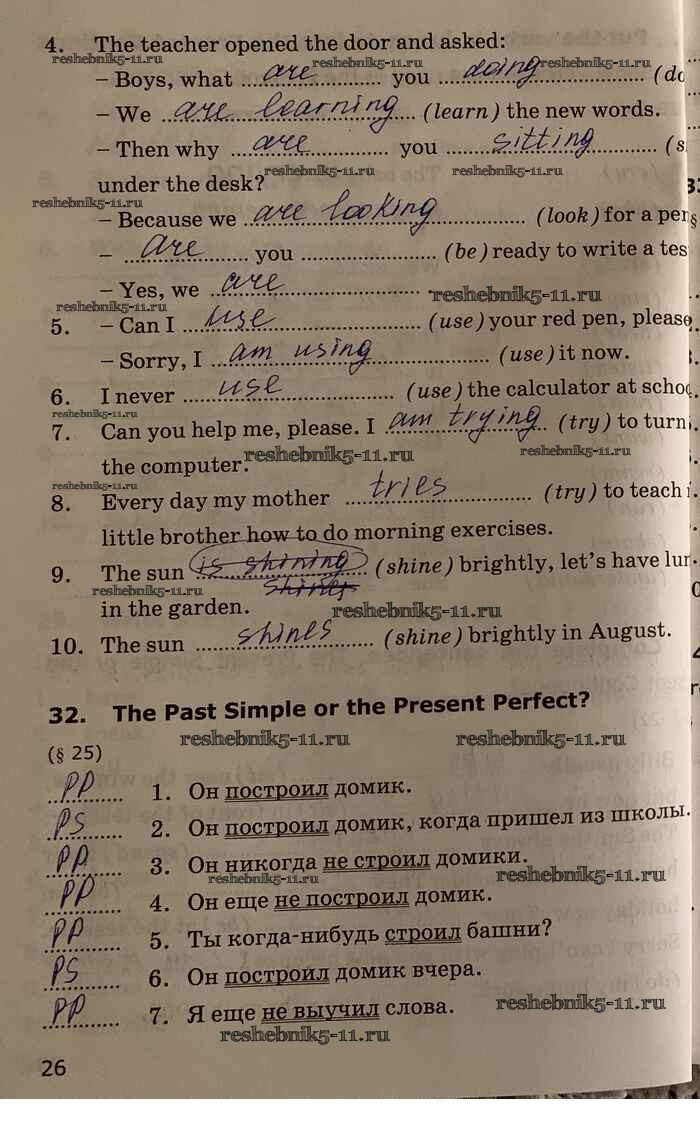 4. The teacher opened the door and asked:
reshebnik5-11.ru reshebnik5-11.ru
– Boys, what are you doing (do
– We are learning (learn) the new words.
– Then why are you sitting (s
reshebnik5-11.ru reshebnik5-11.ru
under the desk?
reshebnik5-11.ru
– Because we are looking (look) for a pen
– are you (be) ready to write a tes
– Yes, we are
reshebnik5-11.ru
reshebnik5-11.ru
5. – Can I use (use) your red pen, please
– Sorry, I am using (use) it now.
6. I never use (use) the calculator at schoo
reshebnik5-11.ru
7. Can you help me, please. I am trying (try) to turn
reshebnik5-11.ru reshebnik5-11.ru
the computer.
reshebnik5-11.ru
8. Every day my mother tries (try) to teach
little brother how to do morning exercises.
9. The sun is shining (shine) brightly, let's have lun
reshebnik5-11.ru shines
in the garden.
reshebnik5-11.ru
10. The sun shines (shine) brightly in August.
32. The Past Simple or the Present Perfect?
reshebnik5-11.ru reshebnik5-11.ru
(§ 25)
PP 1. Он построил домик.
PS 2. Он построил домик, когда пришел из школы.
PP 3. Он никогда не строил домики.
reshebnik5-11.ru reshebnik5-11.ru
PP 4. Он еще не построил домик.
PP 5. Ты когда-нибудь строил башни?
PS 6. Он построил домик вчера.
PP 7. Я еще не выучил слова.
reshebnik5-11.ru
reshebnik5-11.ru
26